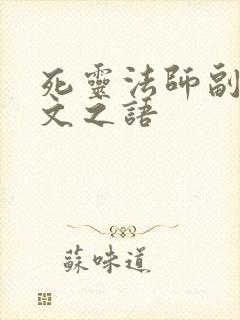 死靈法師副
文之語
蘇味道